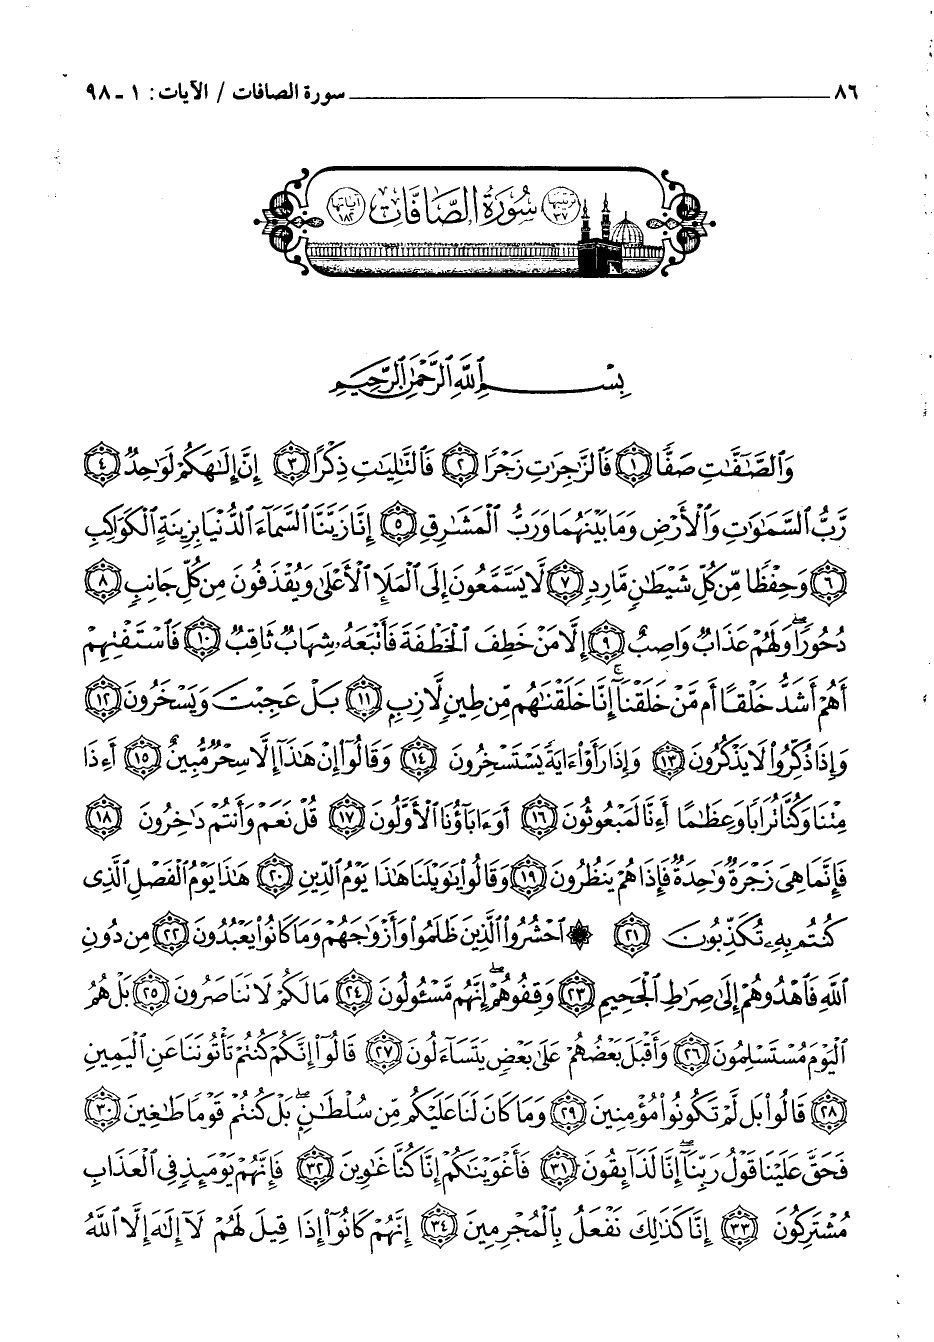 ٨٦ سورة الصافات / الآيات: ١ - ٩٨
ترتيبها ٣٧ سُورَةُ الصَّافَّاتِ آياتها ١٨٢
بِسْمِ ٱللَّهِ ٱلرَّحْمَٰنِ ٱلرَّحِيمِ
وَٱلصَّٰٓفَّٰتِ صَفًّا ١ فَٱلزَّٰجِرَٰتِ زَجْرًا ٢ فَٱلتَّٰلِيَٰتِ ذِكْرًا ٣ إِنَّ إِلَٰهَكُمْ لَوَٰحِدٌ ٤
رَّبُّ ٱلسَّمَٰوَٰتِ وَٱلْأَرْضِ وَمَا بَيْنَهُمَا وَرَبُّ ٱلْمَشَٰرِقِ ٥ إِنَّا زَيَّنَّا ٱلسَّمَآءَ ٱلدُّنْيَا بِزِينَةٍ ٱلْكَوَاكِبِ
٦ وَحِفْظًا مِّن كُلِّ شَيْطَٰنٍ مَّارِدٍ ٧ لَّا يَسَّمَّعُونَ إِلَى ٱلْمَلَإِ ٱلْأَعْلَىٰ وَيُقْذَفُونَ مِن كُلِّ جَانِبٍ ٨
دُحُورًا ۖ وَلَهُمْ عَذَابٌ وَاصِبٌ ٩ إِلَّا مَنْ خَطِفَ ٱلْخَطْفَةَ فَأَتْبَعَهُۥ شِهَابٌ ثَاقِبٌ ١٠ فَٱسْتَفْتِهِمْ
أَهُمْ أَشَدُّ خَلْقًا أَم مَّنْ خَلَقْنَآ ۚ إِنَّا خَلَقْنَٰهُم مِّن طِينٍ لَّازِبٍ ١١ بَلْ عَجِبْتَ وَيَسْخَرُونَ ١٢
وَإِذَا ذُكِّرُوا۟ لَا يَذْكُرُونَ ١٣ وَإِذَا رَأَوْا۟ ءَايَةً يَسْتَسْخِرُونَ ١٤ وَقَالُوٓا۟ إِنْ هَٰذَآ إِلَّا سِحْرٌ مُّبِينٌ ١٥ أَءِذَا
مِتْنَا وَكُنَّا تُرَابًا وَعِظَٰمًا أَءِنَّا لَمَبْعُوثُونَ ١٦ أَوَءَابَآؤُنَا ٱلْأَوَّلُونَ ١٧ قُلْ نَعَمْ وَأَنتُمْ دَٰخِرُونَ ١٨
فَإِنَّمَا هِىَ زَجْرَةٌ وَٰحِدَةٌ فَإِذَا هُمْ يَنظُرُونَ ١٩ وَقَالُوا۟ يَٰوَيْلَنَا هَٰذَا يَوْمُ ٱلدِّينِ ٢٠ هَٰذَا يَوْمُ ٱلْفَصْلِ ٱلَّذِى
كُنتُم بِهِۦ تُكَذِّبُونَ ٢١ ۞ ٱحْشُرُوا۟ ٱلَّذِينَ ظَلَمُوا۟ وَأَزْوَٰجَهُمْ وَمَا كَانُوا۟ يَعْبُدُونَ ٢٢ مِن دُونِ
ٱللَّهِ فَٱهْدُوهُمْ إِلَىٰ صِرَٰطِ ٱلْجَحِيمِ ٢٣ وَقِفُوهُمْ ۖ إِنَّهُم مَّسْـُٔولُونَ ٢٤ مَا لَكُمْ لَا تَنَاصَرُونَ ٢٥ بَلْ هُمُ
ٱلْيَوْمَ مُسْتَسْلِمُونَ ٢٦ وَأَقْبَلَ بَعْضُهُمْ عَلَىٰ بَعْضٍ يَتَسَآءَلُونَ ٢٧ قَالُوٓا۟ إِنَّكُمْ كُنتُمْ تَأْتُونَنَا عَنِ ٱلْيَمِينِ
٢٨ قَالُوا۟ بَل لَّمْ تَكُونُوا۟ مُؤْمِنِينَ ٢٩ وَمَا كَانَ لَنَا عَلَيْكُم مِّن سُلْطَٰنٍ ۖ بَلْ كُنتُمْ قَوْمًا طَٰغِينَ ٣٠
فَحَقَّ عَلَيْنَا قَوْلُ رَبِّنَآ ۖ إِنَّا لَذَآئِقُونَ ٣١ فَأَغْوَيْنَٰكُمْ إِنَّا كُنَّا غَٰوِينَ ٣٢ فَإِنَّهُمْ يَوْمَئِذٍ فِى ٱلْعَذَابِ
مُشْتَرِكُونَ ٣٣ إِنَّا كَذَٰلِكَ نَفْعَلُ بِٱلْمُجْرِمِينَ ٣٤ إِنَّهُمْ كَانُوٓا۟ إِذَا قِيلَ لَهُمْ لَآ إِلَٰهَ إِلَّا ٱللَّهُ